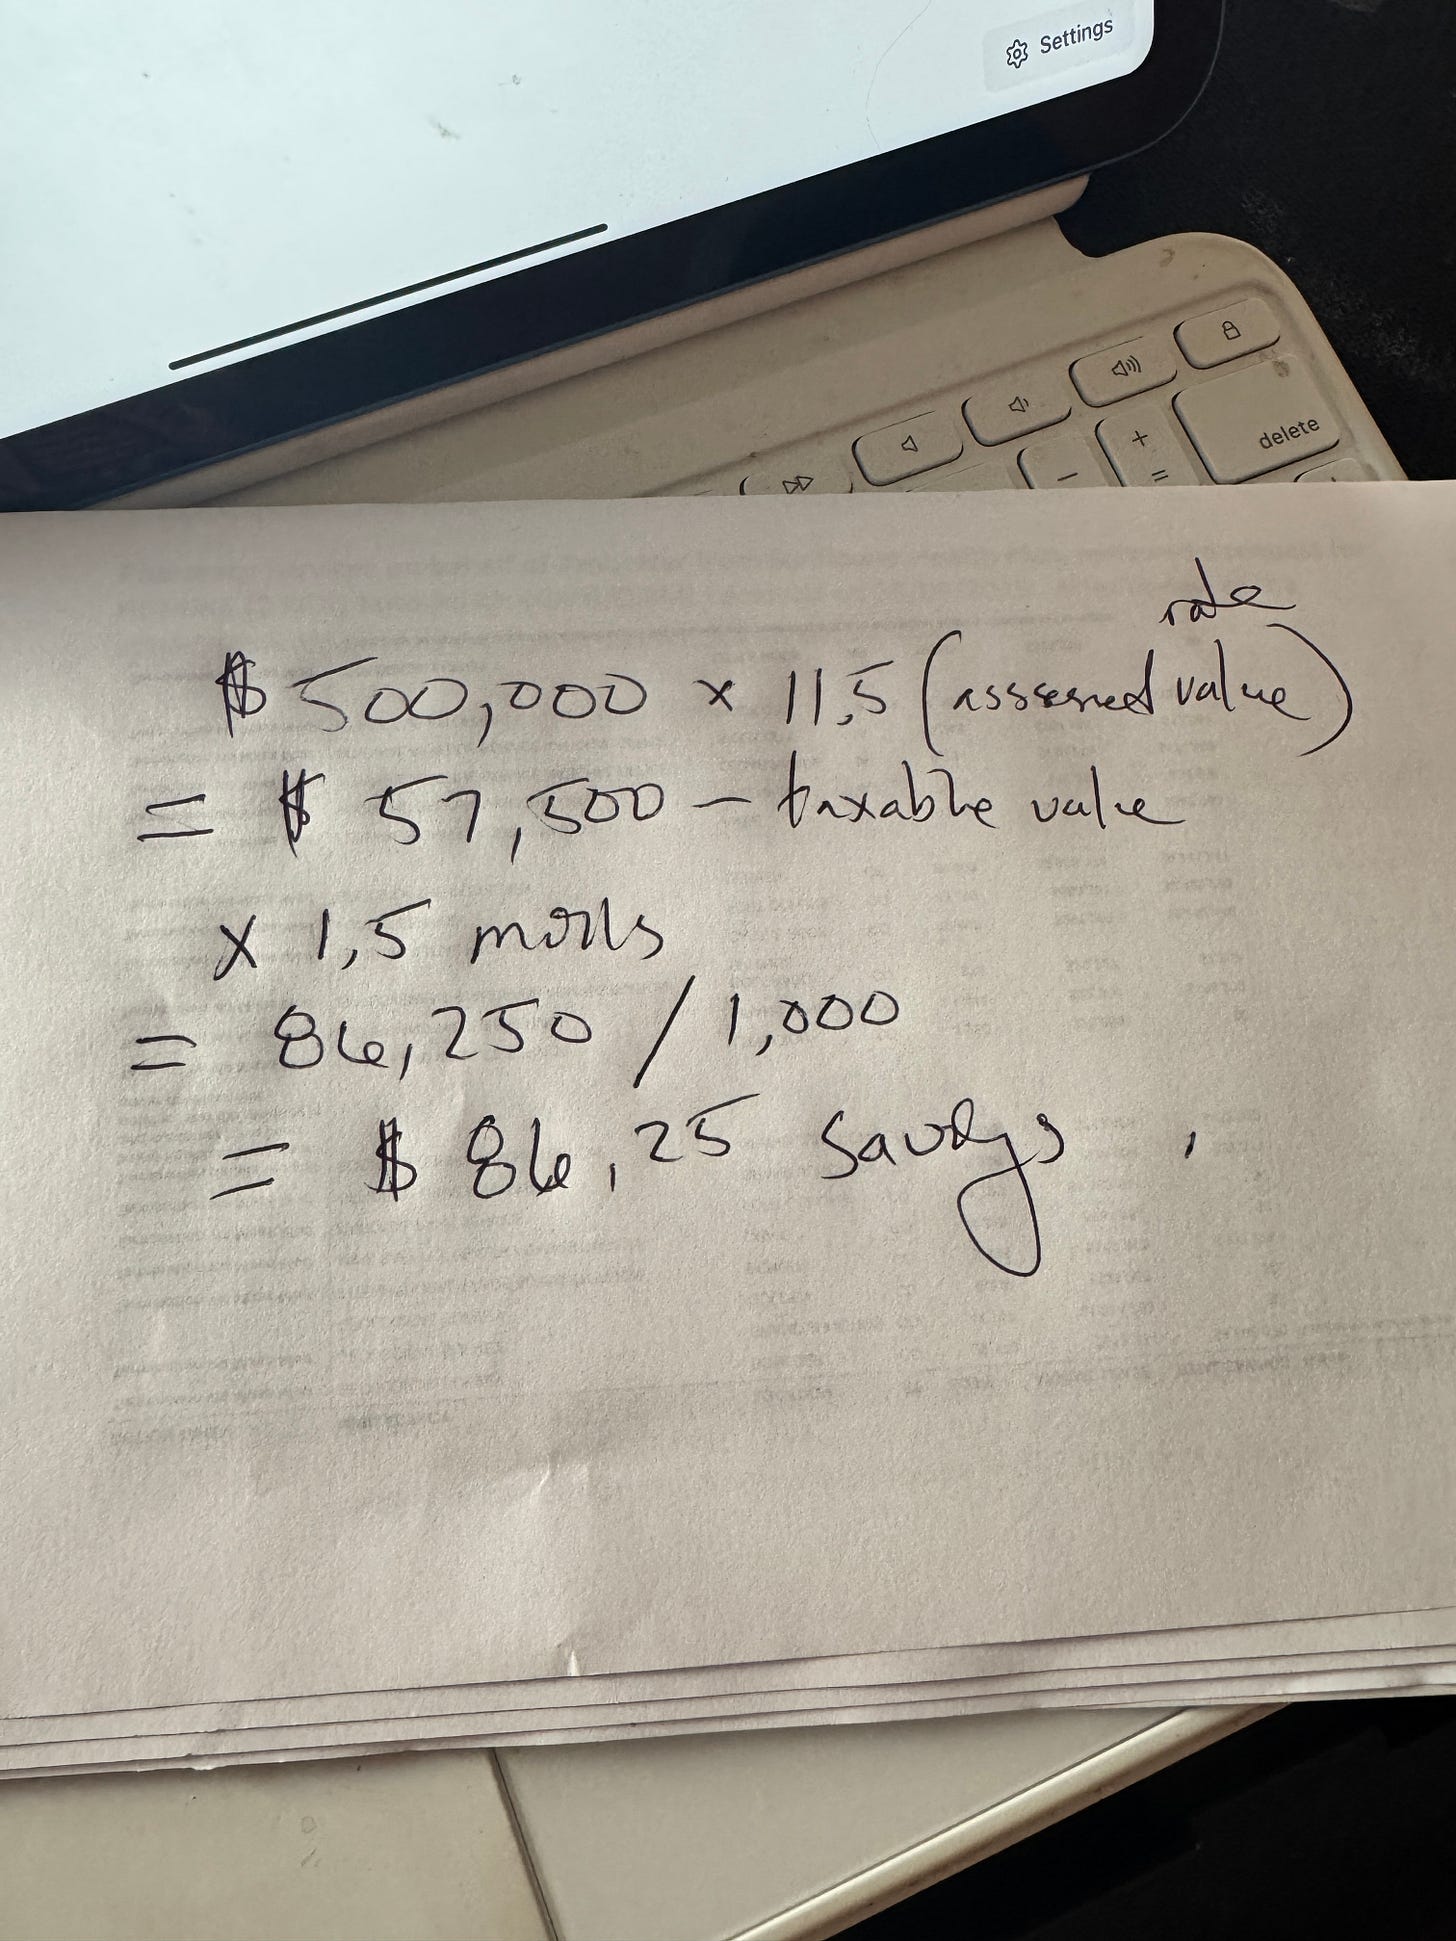 Settings
delete
+
=
-
rate
$500,000 x 11.5 (assessed value)
= $ 57,500 - taxable value
x 1.5 mills
= 86,250 / 1,000
= $ 86.25 savings